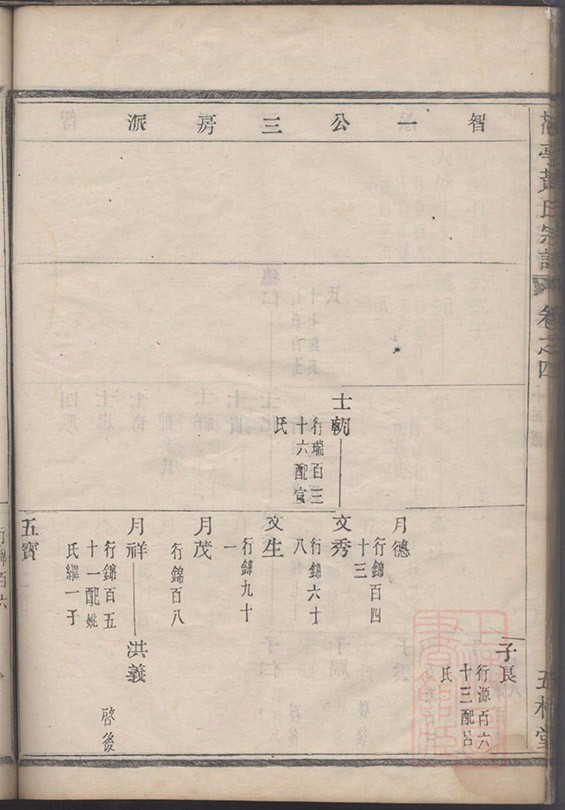 黃氏宗譜
卷之四
智一公三房派
子良
行源百六
十三配呂
氏
月德
行錦百四
十三
士朝
行瑞百三
十六配宣
氏
文秀
行錦六十
八
文生
行錦九十
一
月茂
行錦百八
月祥
行錦百五
十一配姚
氏繼一子
洪義
啓後
五寶